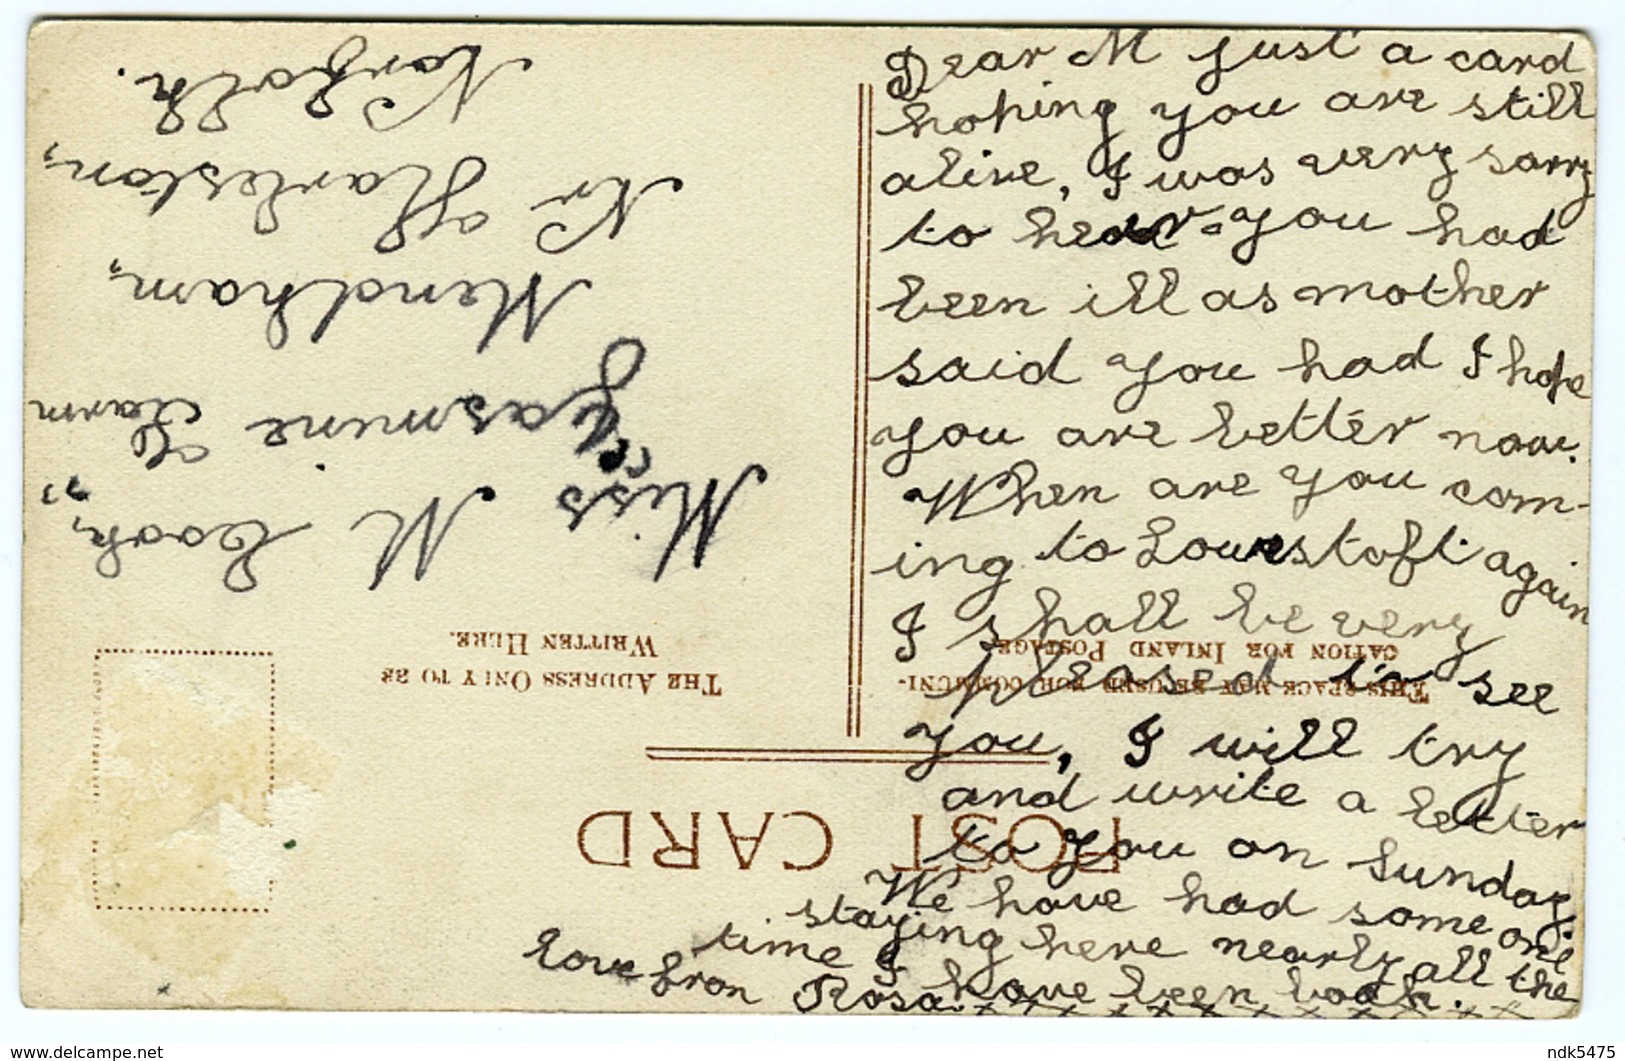 Dear M just a card
hoping you are still
alive, I was very sorry
to hear you had
been ill as mother
said you had I hope
you are better now.
When are you com-
ing to Lowestoft again
I shall be very
pleased to see
you, I will try
and write a letter
to you on Sunday.
We have had some one
staying here nearly all the
time I have been back.
Love from Rosa. x x x x x x x x x x x x
POST CARD
THIS SPACE MAY BE USED FOR COMMUNI-
CATION FOR INLAND POSTAGE.
THE ADDRESS ONLY TO BE
WRITTEN HERE.
Miss M Cook,
Jasmine Farm
Mendham,
Nr Harleston,
Norfolk.
ndk5475
www.delcampe.net